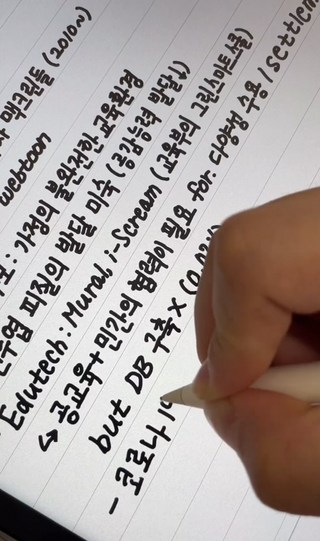 맥크린들 (2010~)
webtoon
: 가정의 불완전한 교육환경
피질의 발달 미숙 (공감능력 발달↓)
Edutech : Mural, i-Scream (교육부의 그린스마트스쿨)
↳ 공교육 + 민간의 협력이 필요 for. 다양성 수용 / settlem
but DB 구축 X
- 코로나 19